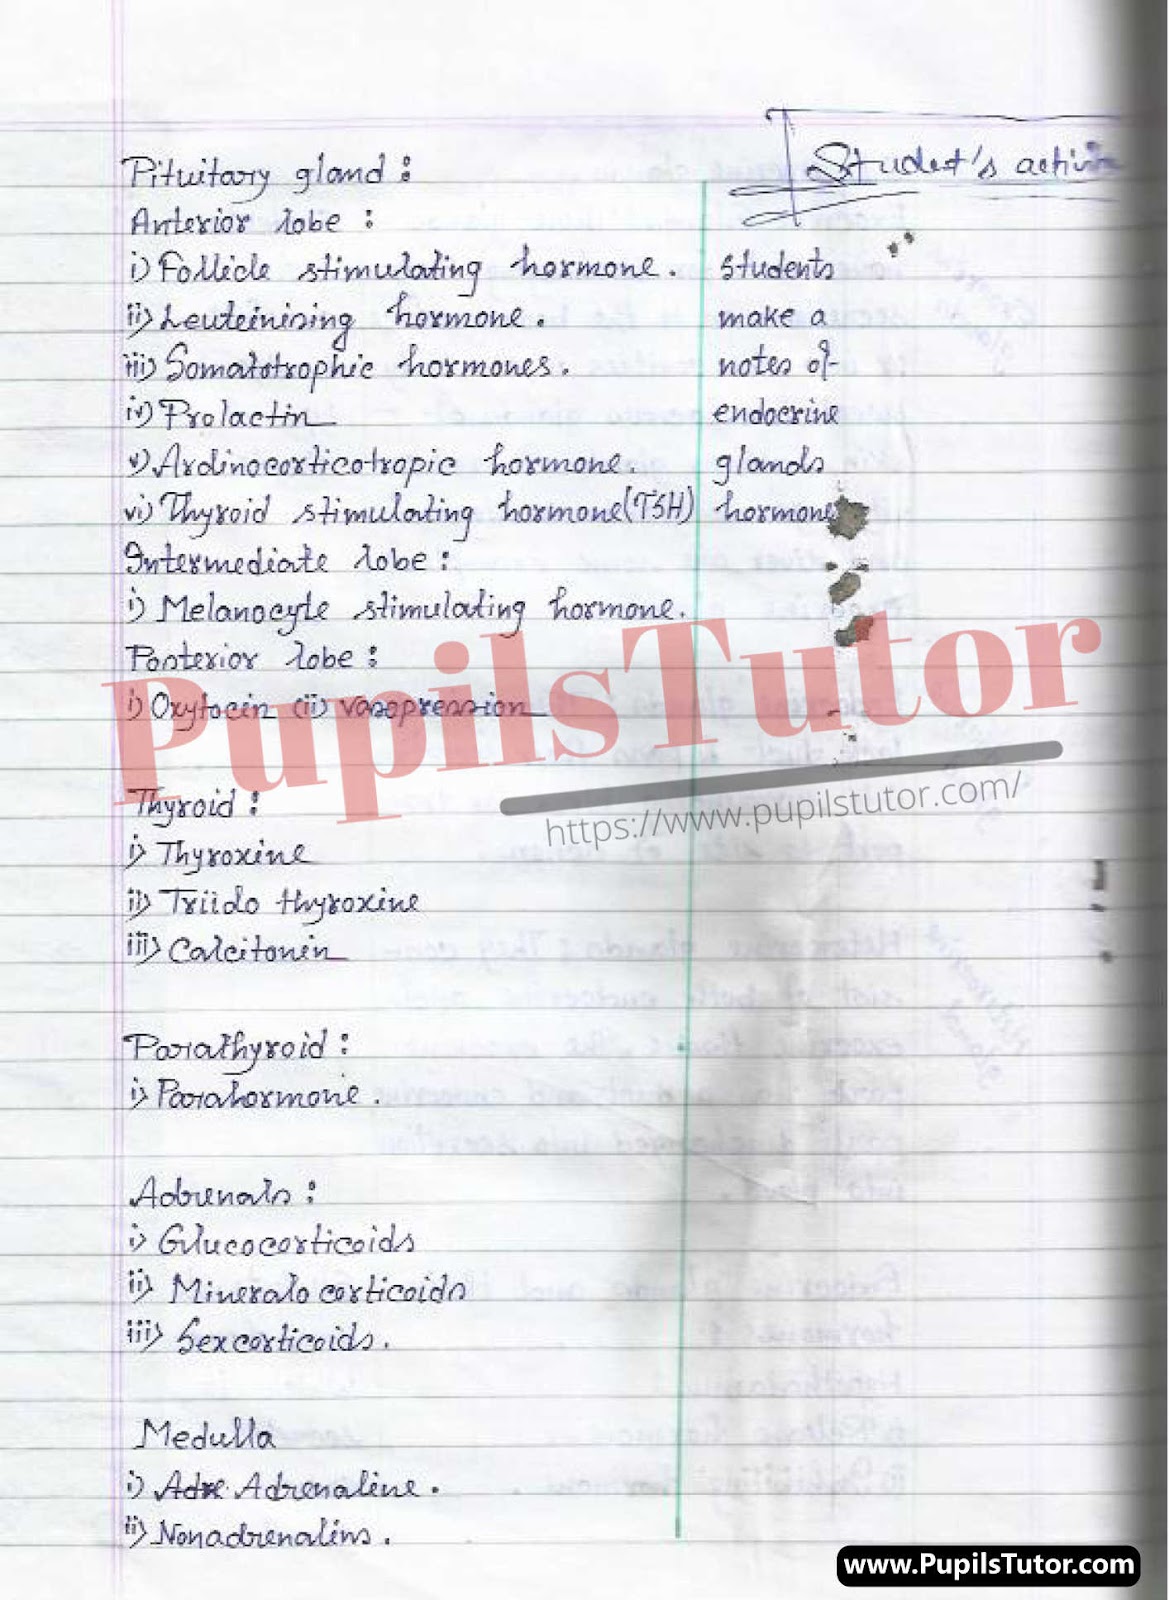 Student's
Pituitary gland :
Anterior lobe :
i) Follicle stimulating hormone.
ii) Leuteinising hormone.
iii) Somatotrophic hormones.
iv) Prolactin
v) Ardinocorticotropic hormone.
vi) Thyroid stimulating hormone(TSH)
Intermediate lobe :
i) Melanocyte stimulating hormone.
Posterior lobe :
i) Oxytocin (ii) vasopression
Thyroid :
i) Thyroxine
ii) Triido thyroxine
iii) Calcitonin
Parathyroid :
i) Parahormone.
Adrenals :
i) Glucocorticoids
ii) Mineralo corticoids
iii) Sexcorticoids.
Medulla
i) Adre Adrenaline.
ii) Nonadrenalins.
students
make a
notes of
endocrine
glands
hormone
PupilsTutor
https://www.pupilstutor.com/
www.PupilsTutor.com